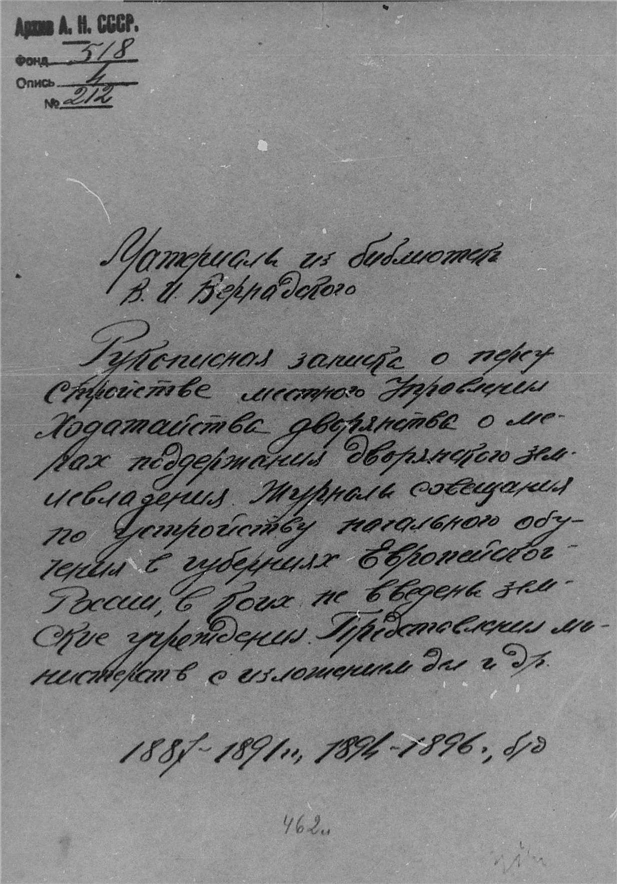 Архив А. Н. СССР.
Фонд 518
Опись 4
№ 212
Материалы из библиотек
В. И. Вернадского
Рукописная записка о переу
стройстве местного Управления
Ходатайства дворянства о ме-
рах поддержания дворянского зем-
левладения. Журналы совещания
по устройству начального обу-
чения в губерниях Европейской
России, в коих не введены зем-
ские учреждения. Представления ми-
нистерств с изложением дел и др.
1887-1891гг, 1894-1896г., б/д
462л